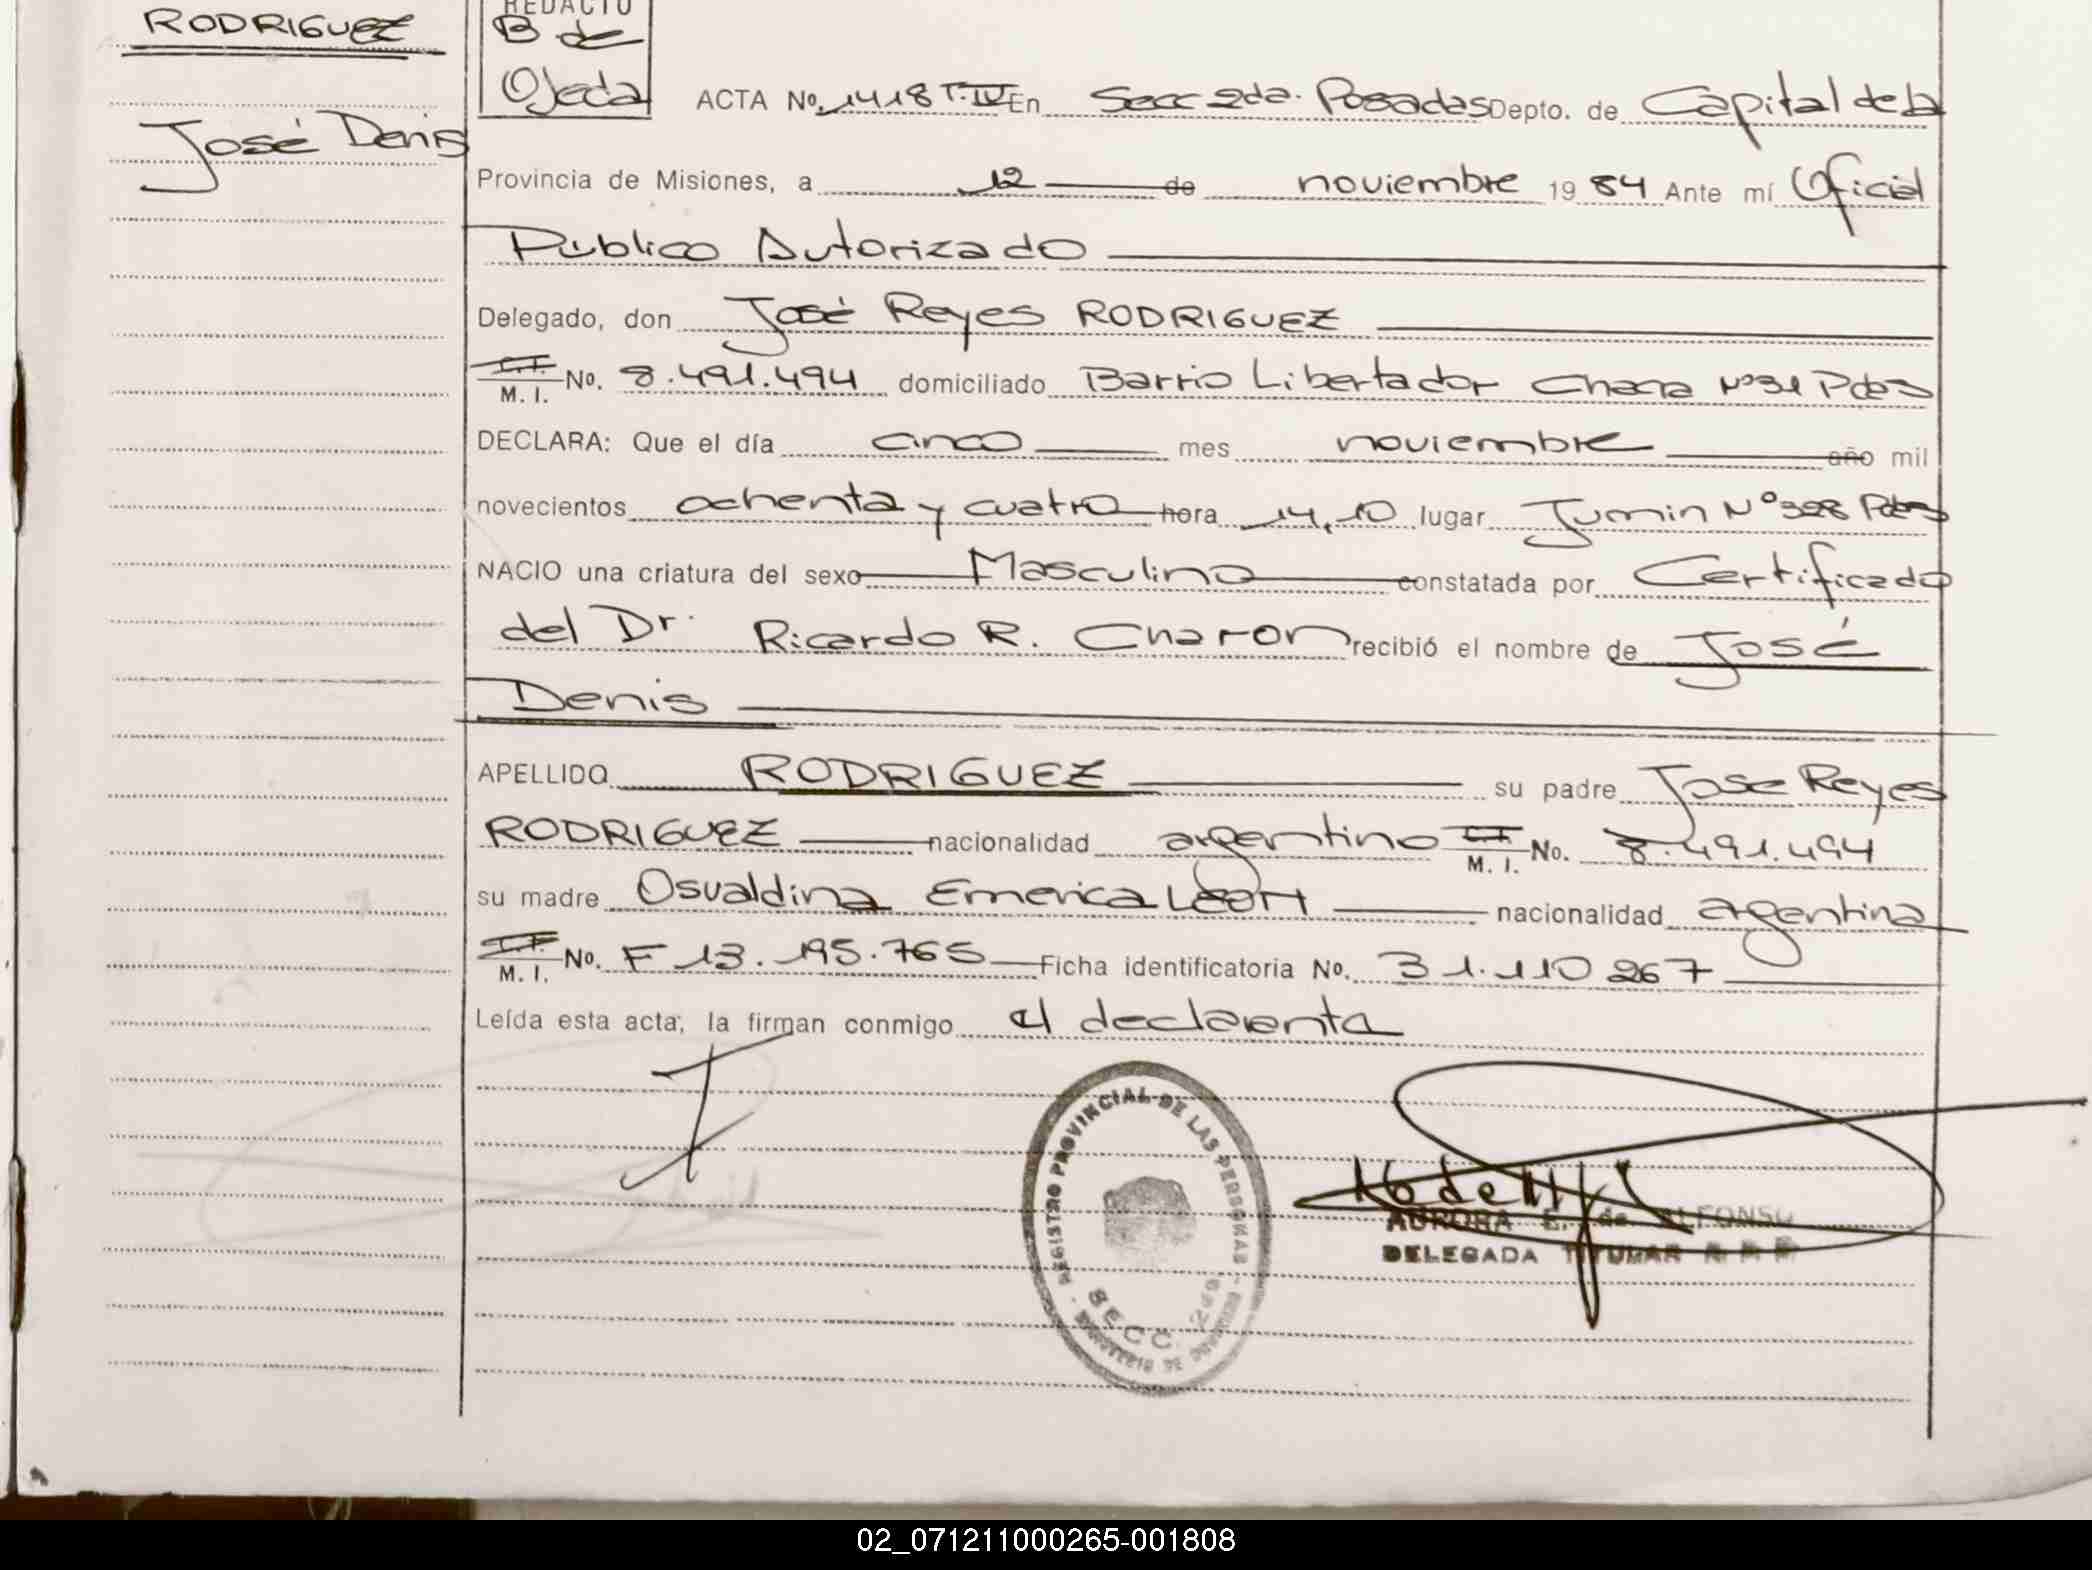 RODRIGUEZ
José Denis
REDACTO
B de
Ojeda
ACTA No. 1418 T.IV En Secc 2da. Posadas Depto. de Capital de la
Provincia de Misiones, a 12 de noviembre 1984 Ante mí Oficial
Público Autorizado
Delegado, don José Reyes RODRIGUEZ
M. I. No. 8.491.494 domiciliado Barrio Libertador Chacra Nº31 Pdas
DECLARA: Que el día cinco mes noviembre año mil
novecientos ochenta y cuatro hora 14,10 lugar Junin Nº 398 Pdas
NACIO una criatura del sexo Masculino constatada por Certificado
del Dr. Ricardo R. Charon recibió el nombre de José
Denis
APELLIDO RODRIGUEZ su padre Jose Reyes
RODRIGUEZ nacionalidad argentino M. I. No. 8.491.494
su madre Osvaldina Emerica LEON nacionalidad argentina
M. I. No. F 13.195.765 Ficha identificatoria No. 31.110 267
Leída esta acta, la firman conmigo el declarante
REGISTRO PROVINCIAL DE LAS PERSONAS
SECC. 2da
AURORA E. de ALFONSO
DELEGADA TITULAR
02_071211000265-001808